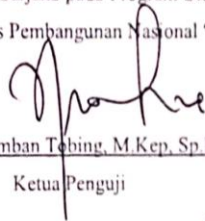 pada Program
s Pembangunan Nasional "
mban Tobing, M.Kep, Sp.
Ketua Penguji